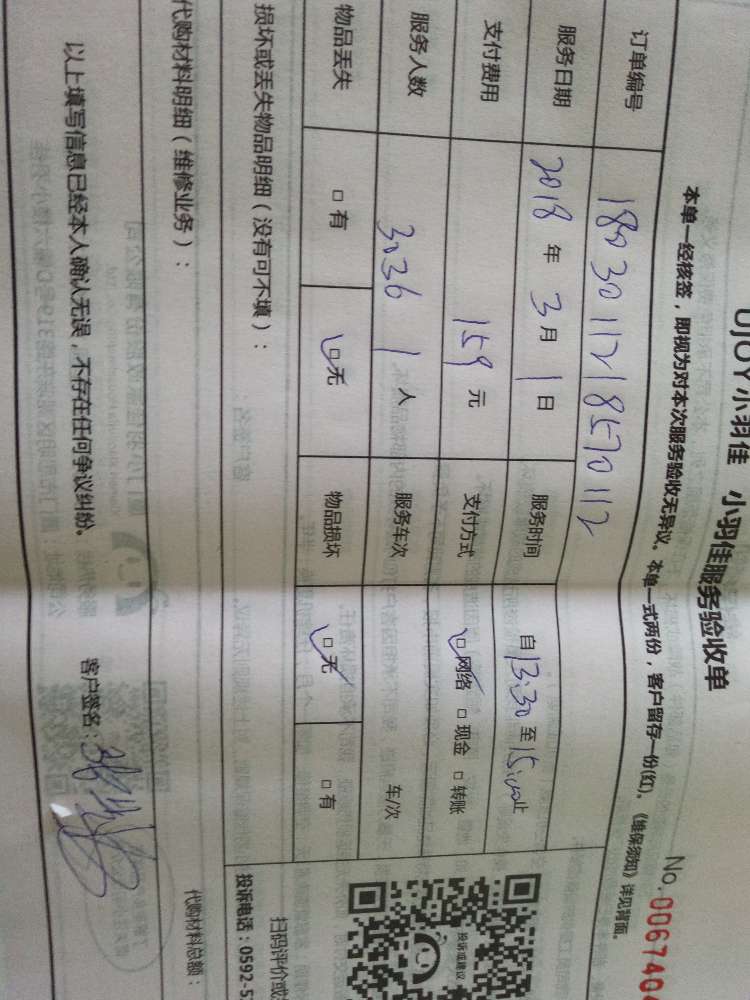 UJOY小羽佳 小羽佳服务验收单
No.0067404
本单一经核签，即视为对本次服务验收无异议。本单一式两份，客户留存一份(红)。《维保须知》详见背面。
订单编号 1803011218570112
服务日期 2018年3月1日 服务时间 自13:30至15:00止
支付费用 159元 支付方式 □网络 □现金 □转账
服务人数 3036 1人 服务车次 车/次
物品丢失 □有 □无 物品损坏 □无 □有
损坏或丢失物品明细（没有可不填）：
投诉或建议
扫码评价或
投诉电话：0592-5
代购材料明细（维修业务）：
代购材料总额：
以上填写信息已经本人确认无误，不存在任何争议纠纷。 客户签名：